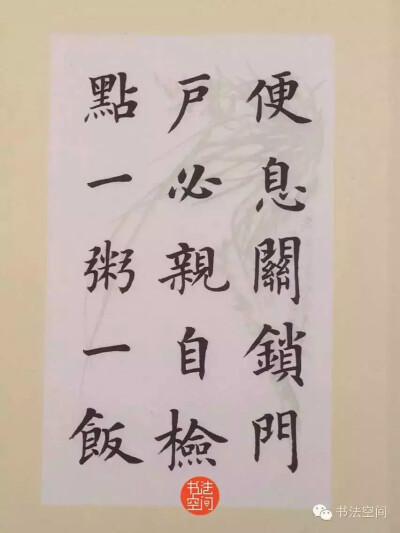 便息關鎖門
戶必親自檢
點一粥一飯
书法
空间
书法空间